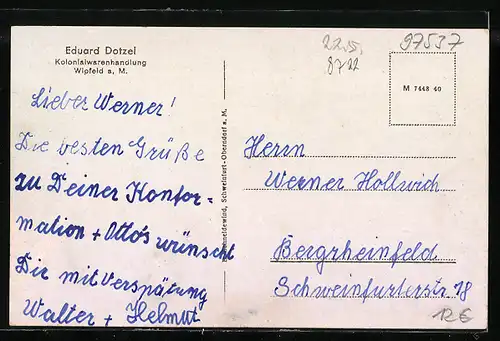 Eduard Dotzel
Kolonialwarenhandlung
Wipfeld a. M.
22.5.
8722
97537
M 7448 40
Lieber Werner!
Die besten Grüße
zu Deiner Konfor-
mation + Otto's wünscht
Dir mit Verspätung
Walter + Helmut
Schneiderwind, Schweinfurt-Oberndorf a. M.
Herrn
Werner Hollwich
Bergrheinfeld
Schweinfurterstr 18
12€